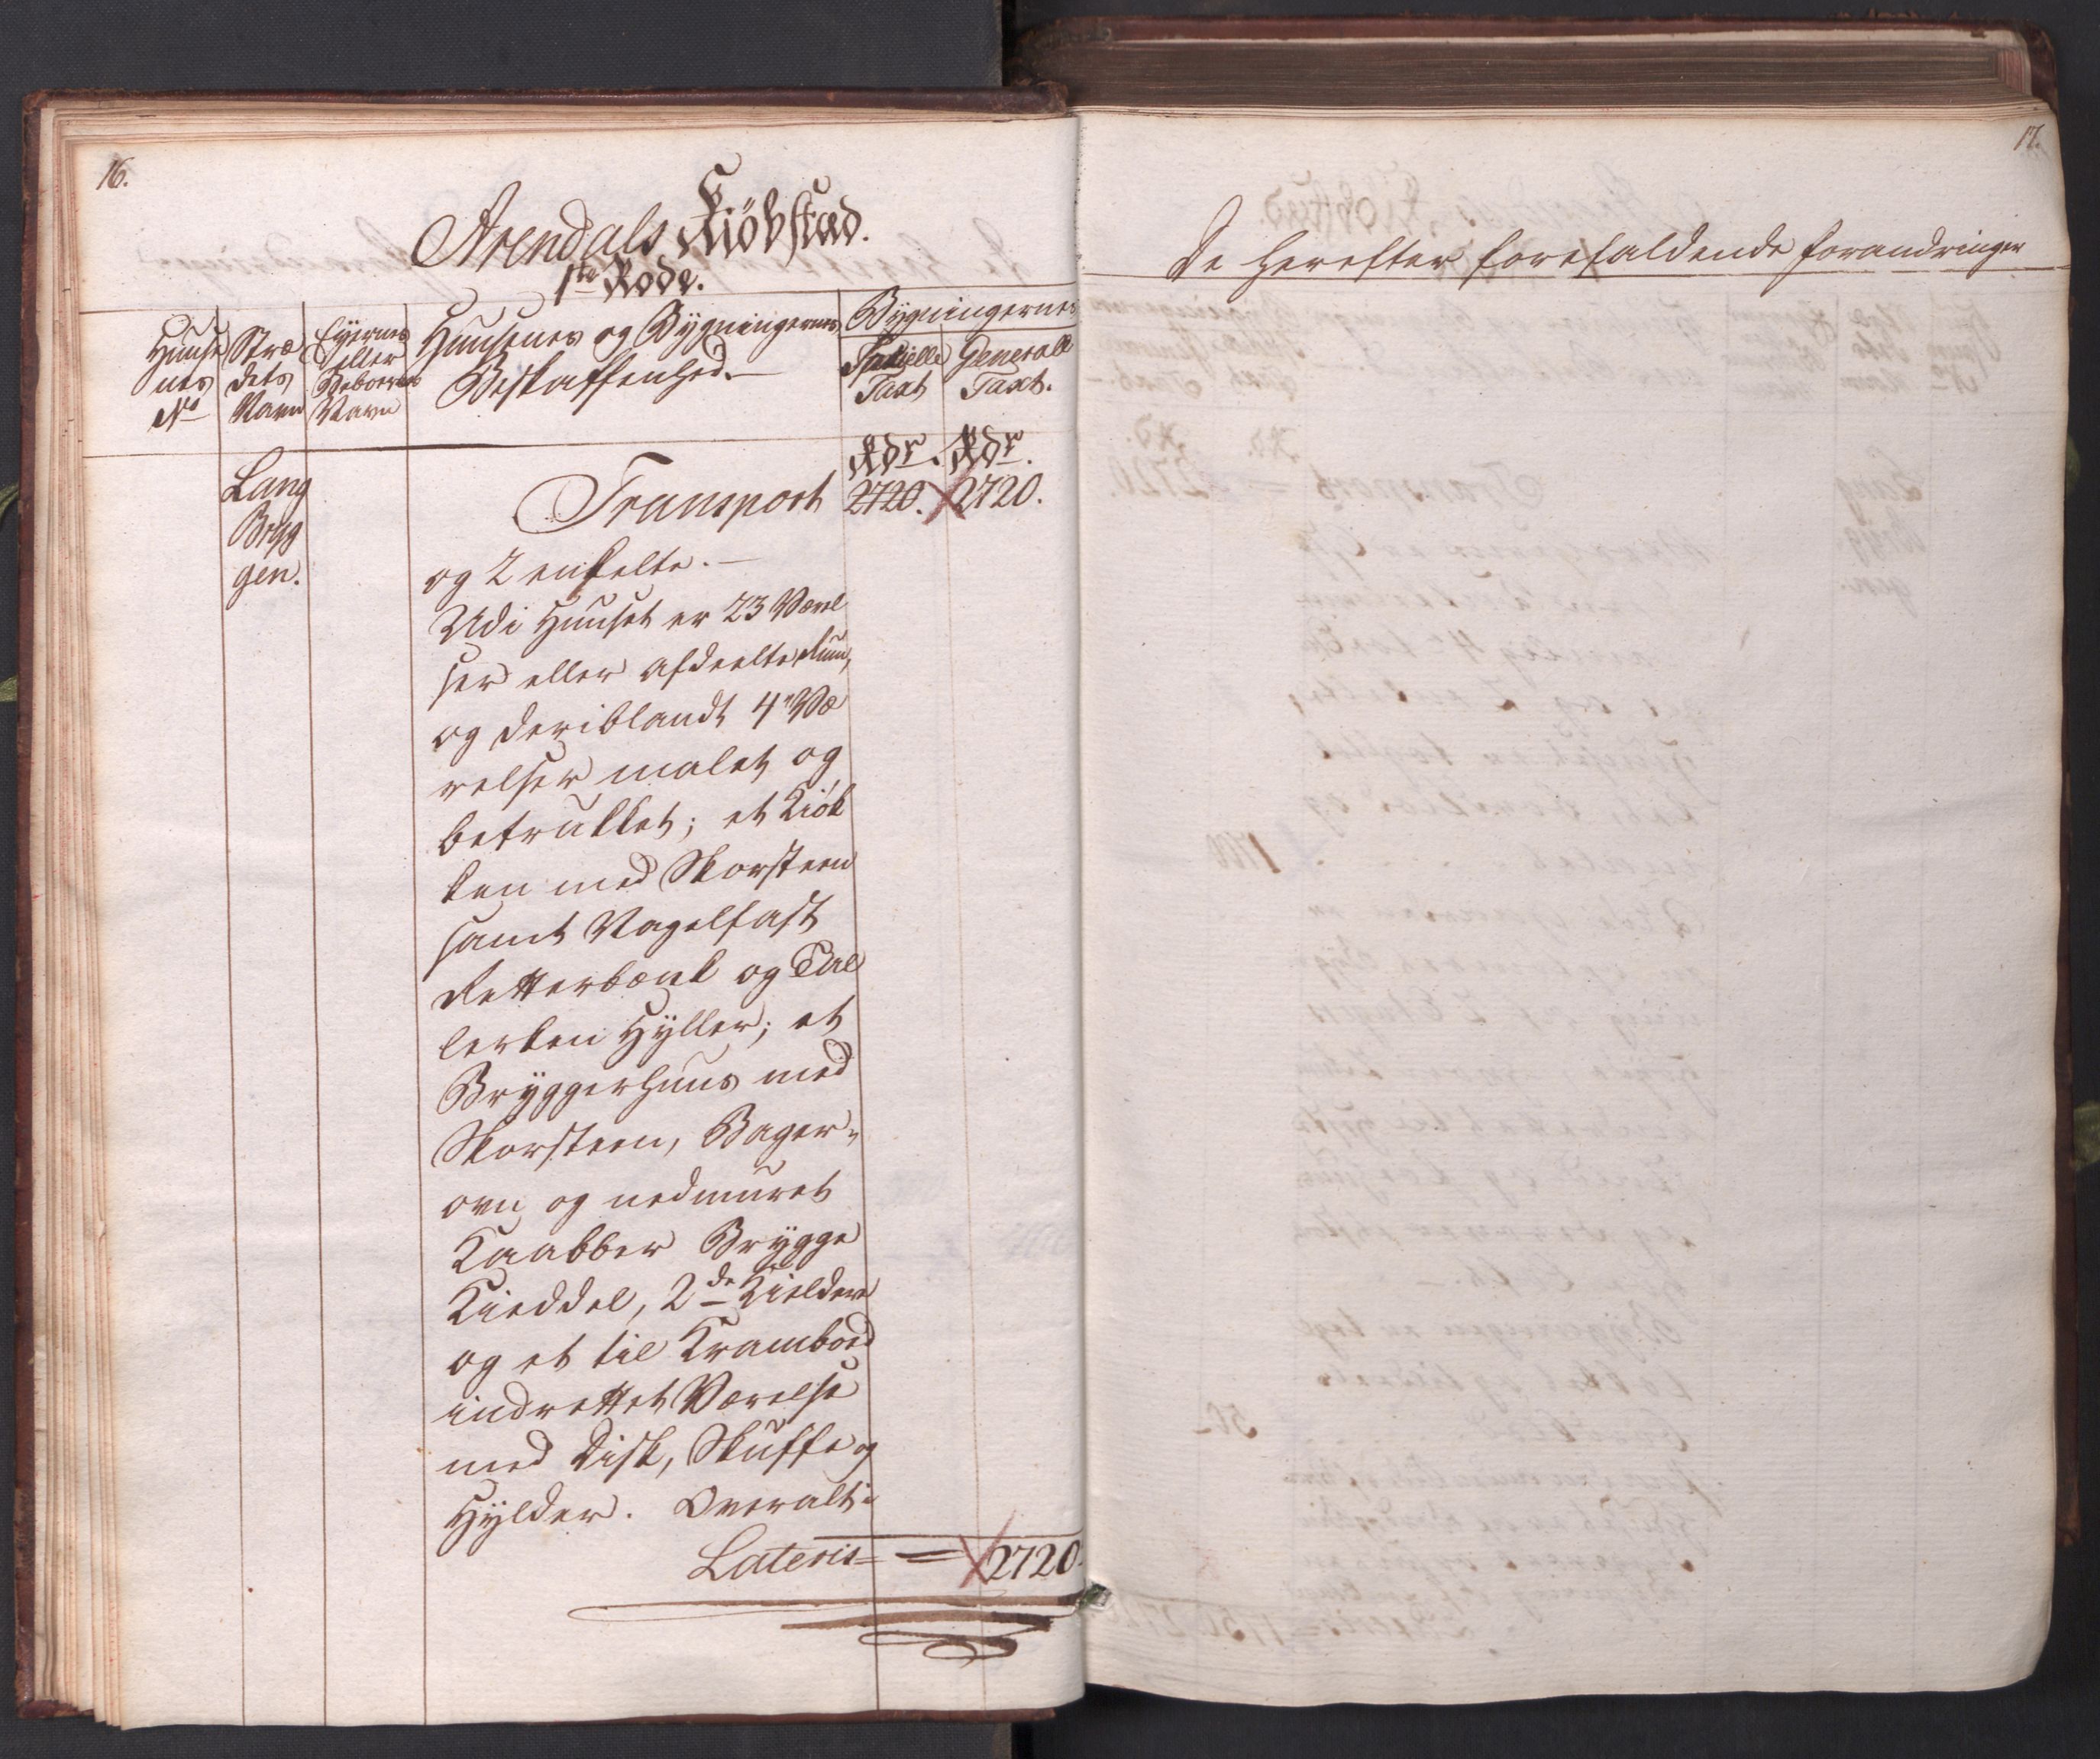 16.
Arendals Kiöbstæd.
1ste Rode.
Huuse
nes
No
Stræ
dets
Navn
Eyernes
eller
Beboernes
Navn
Huusenes og Bÿgningernes
Beskaffenhed. —
Bÿgningernes
Special
Taxt
General
Taxt.
Rdr. Rdr.
Lang
Brÿg
gen.
Transport 2720. 2720.
og 2 enkelte. —
Udi Huuset er 23 Værel
ser eller afdeelte Rum,
og deriblandt 4 Væ
relser malet og
betrukket; et Kiök
ken med Skorsteen
samt Nagelfast
Retterbænk og Tal
lerken Hÿller; et
Brÿggerhuus med
Skorsteen, Bager-
ovn og nedmuret
Kaabber Brÿgge
Kieddel, 2de Kieldere
og et til Krambod
indrettet Værelse
med Disk, Skuffe og
Hÿlder. Overalt i
Lateris = = 2720.
17.
De herefter forefaldende Forandringer